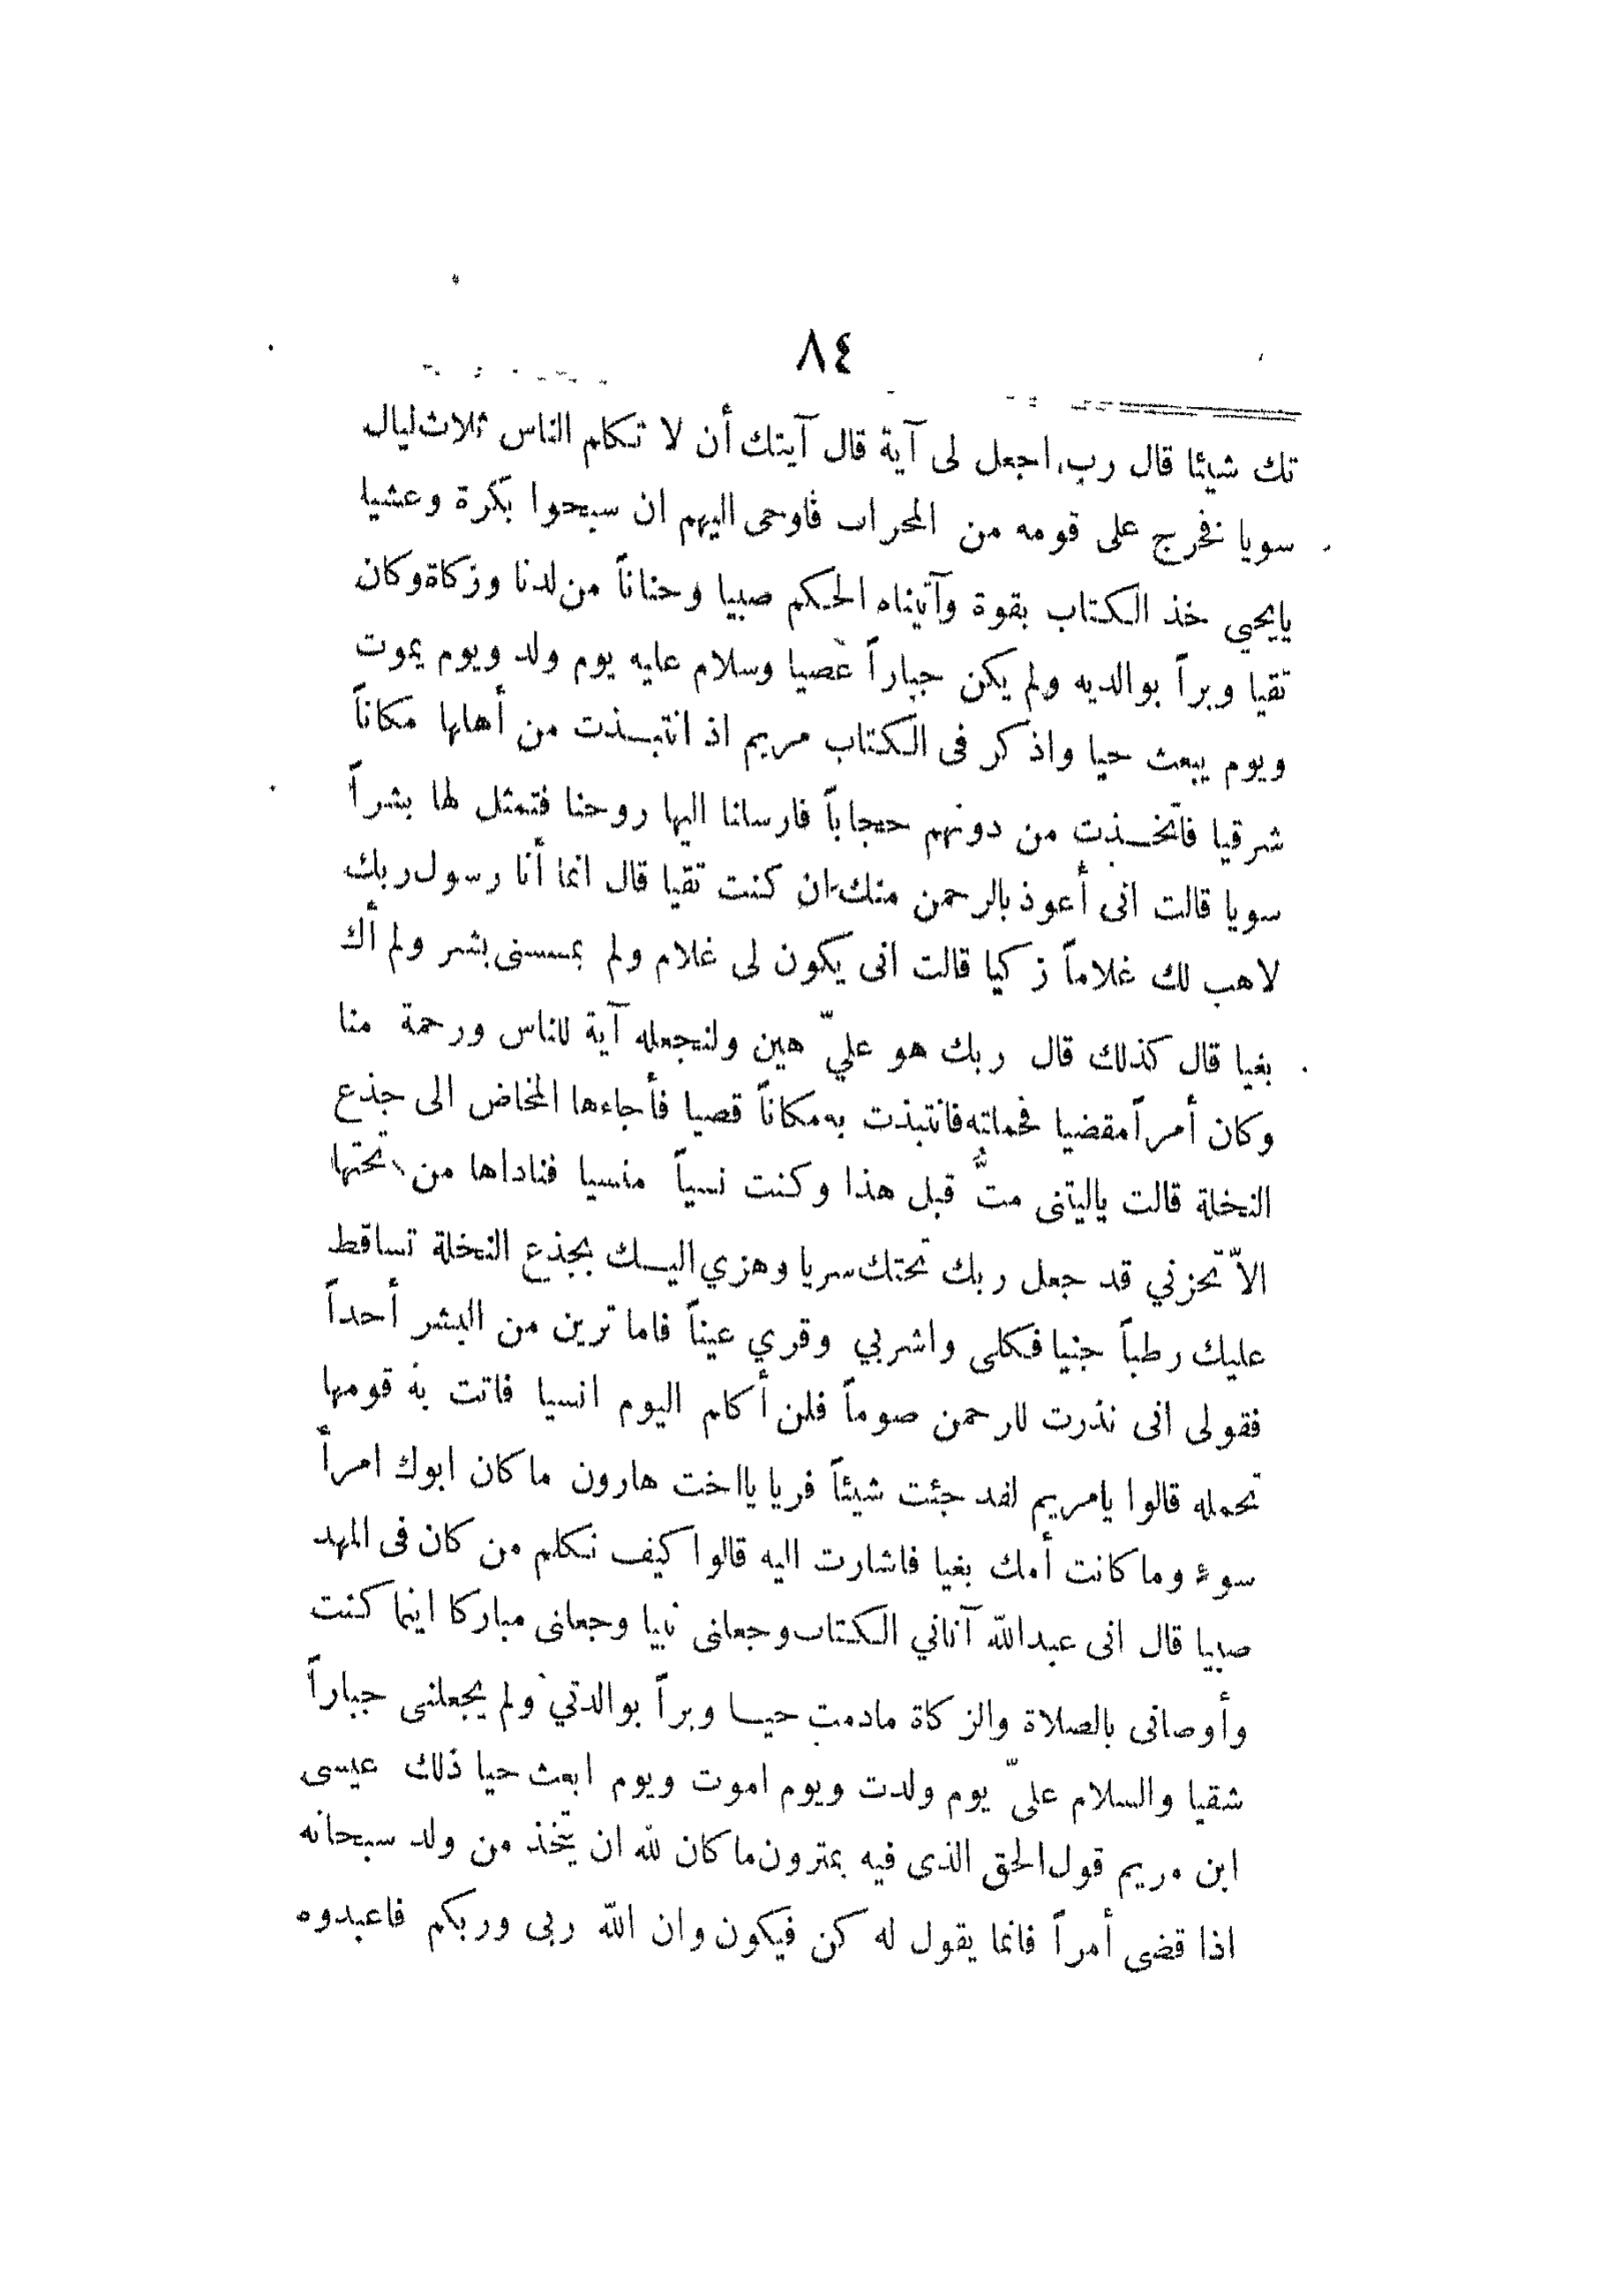 ٨٤
تك شيئا قال رب اجعل لى آية قال آيتك أن لا تكلم الناس ثلاث ليال
سويا فخرج على قومه من المحراب فاوحى اليهم ان سبحوا بكرة وعشيا
يايحيي خذ الكتاب بقوة وآتيناه الحكم صبيا وحناناً من لدنا وزكاة وكان
تقيا وبراً بوالديه ولم يكن جباراً عصيا وسلام عليه يوم ولد ويوم يموت
ويوم يبعث حيا واذكر فى الكتاب مريم اذ انتبذت من أهلها مكاناً
شرقيا فاتخذت من دونهم حجاباً فارسلنا اليها روحنا فتمثل لها بشراً
سويا قالت انى أعوذ بالرحمن منك ان كنت تقيا قال انما أنا رسول ربك
لاهب لك غلاماً زكيا قالت انى يكون لى غلام ولم يمسسنى بشر ولم أك
بغيا قال كذلك قال ربك هو عليّ هين ولنجعله آية للناس ورحمة منا
وكان أمراً مقضيا فحملته فانتبذت به مكاناً قصيا فأجاءها المخاض الى جذع
النخلة قالت ياليتنى متُّ قبل هذا وكنت نسياً منسيا فناداها من تحتها
الاّ تحزني قد جعل ربك تحتك سريا وهزي اليك بجذع النخلة تساقط
عليك رطباً جنيا فكلى واشربي وقري عيناً فاما ترين من البشر أحداً
فقولى انى نذرت للرحمن صوماً فلن أكلم اليوم انسيا فاتت به قومها
تحمله قالوا يامريم لقد جئت شيئاً فريا يااخت هارون ما كان ابوك امرأ
سوء وما كانت أمك بغيا فاشارت اليه قالوا كيف نكلم من كان فى المهد
صبيا قال انى عبد الله آتاني الكتاب وجعلنى نبيا وجعلنى مباركا اينما كنت
وأوصانى بالصلاة والزكاة مادمت حيا وبراً بوالدتي ولم يجعلنى جباراً
شقيا والسلام علىّ يوم ولدت ويوم اموت ويوم ابعث حيا ذلك عيسى
ابن مريم قول الحق الذى فيه يمترون ما كان لله ان يتخذ من ولد سبحانه
اذا قضى أمراً فانما يقول له كن فيكون وان الله ربى وربكم فاعبدوه